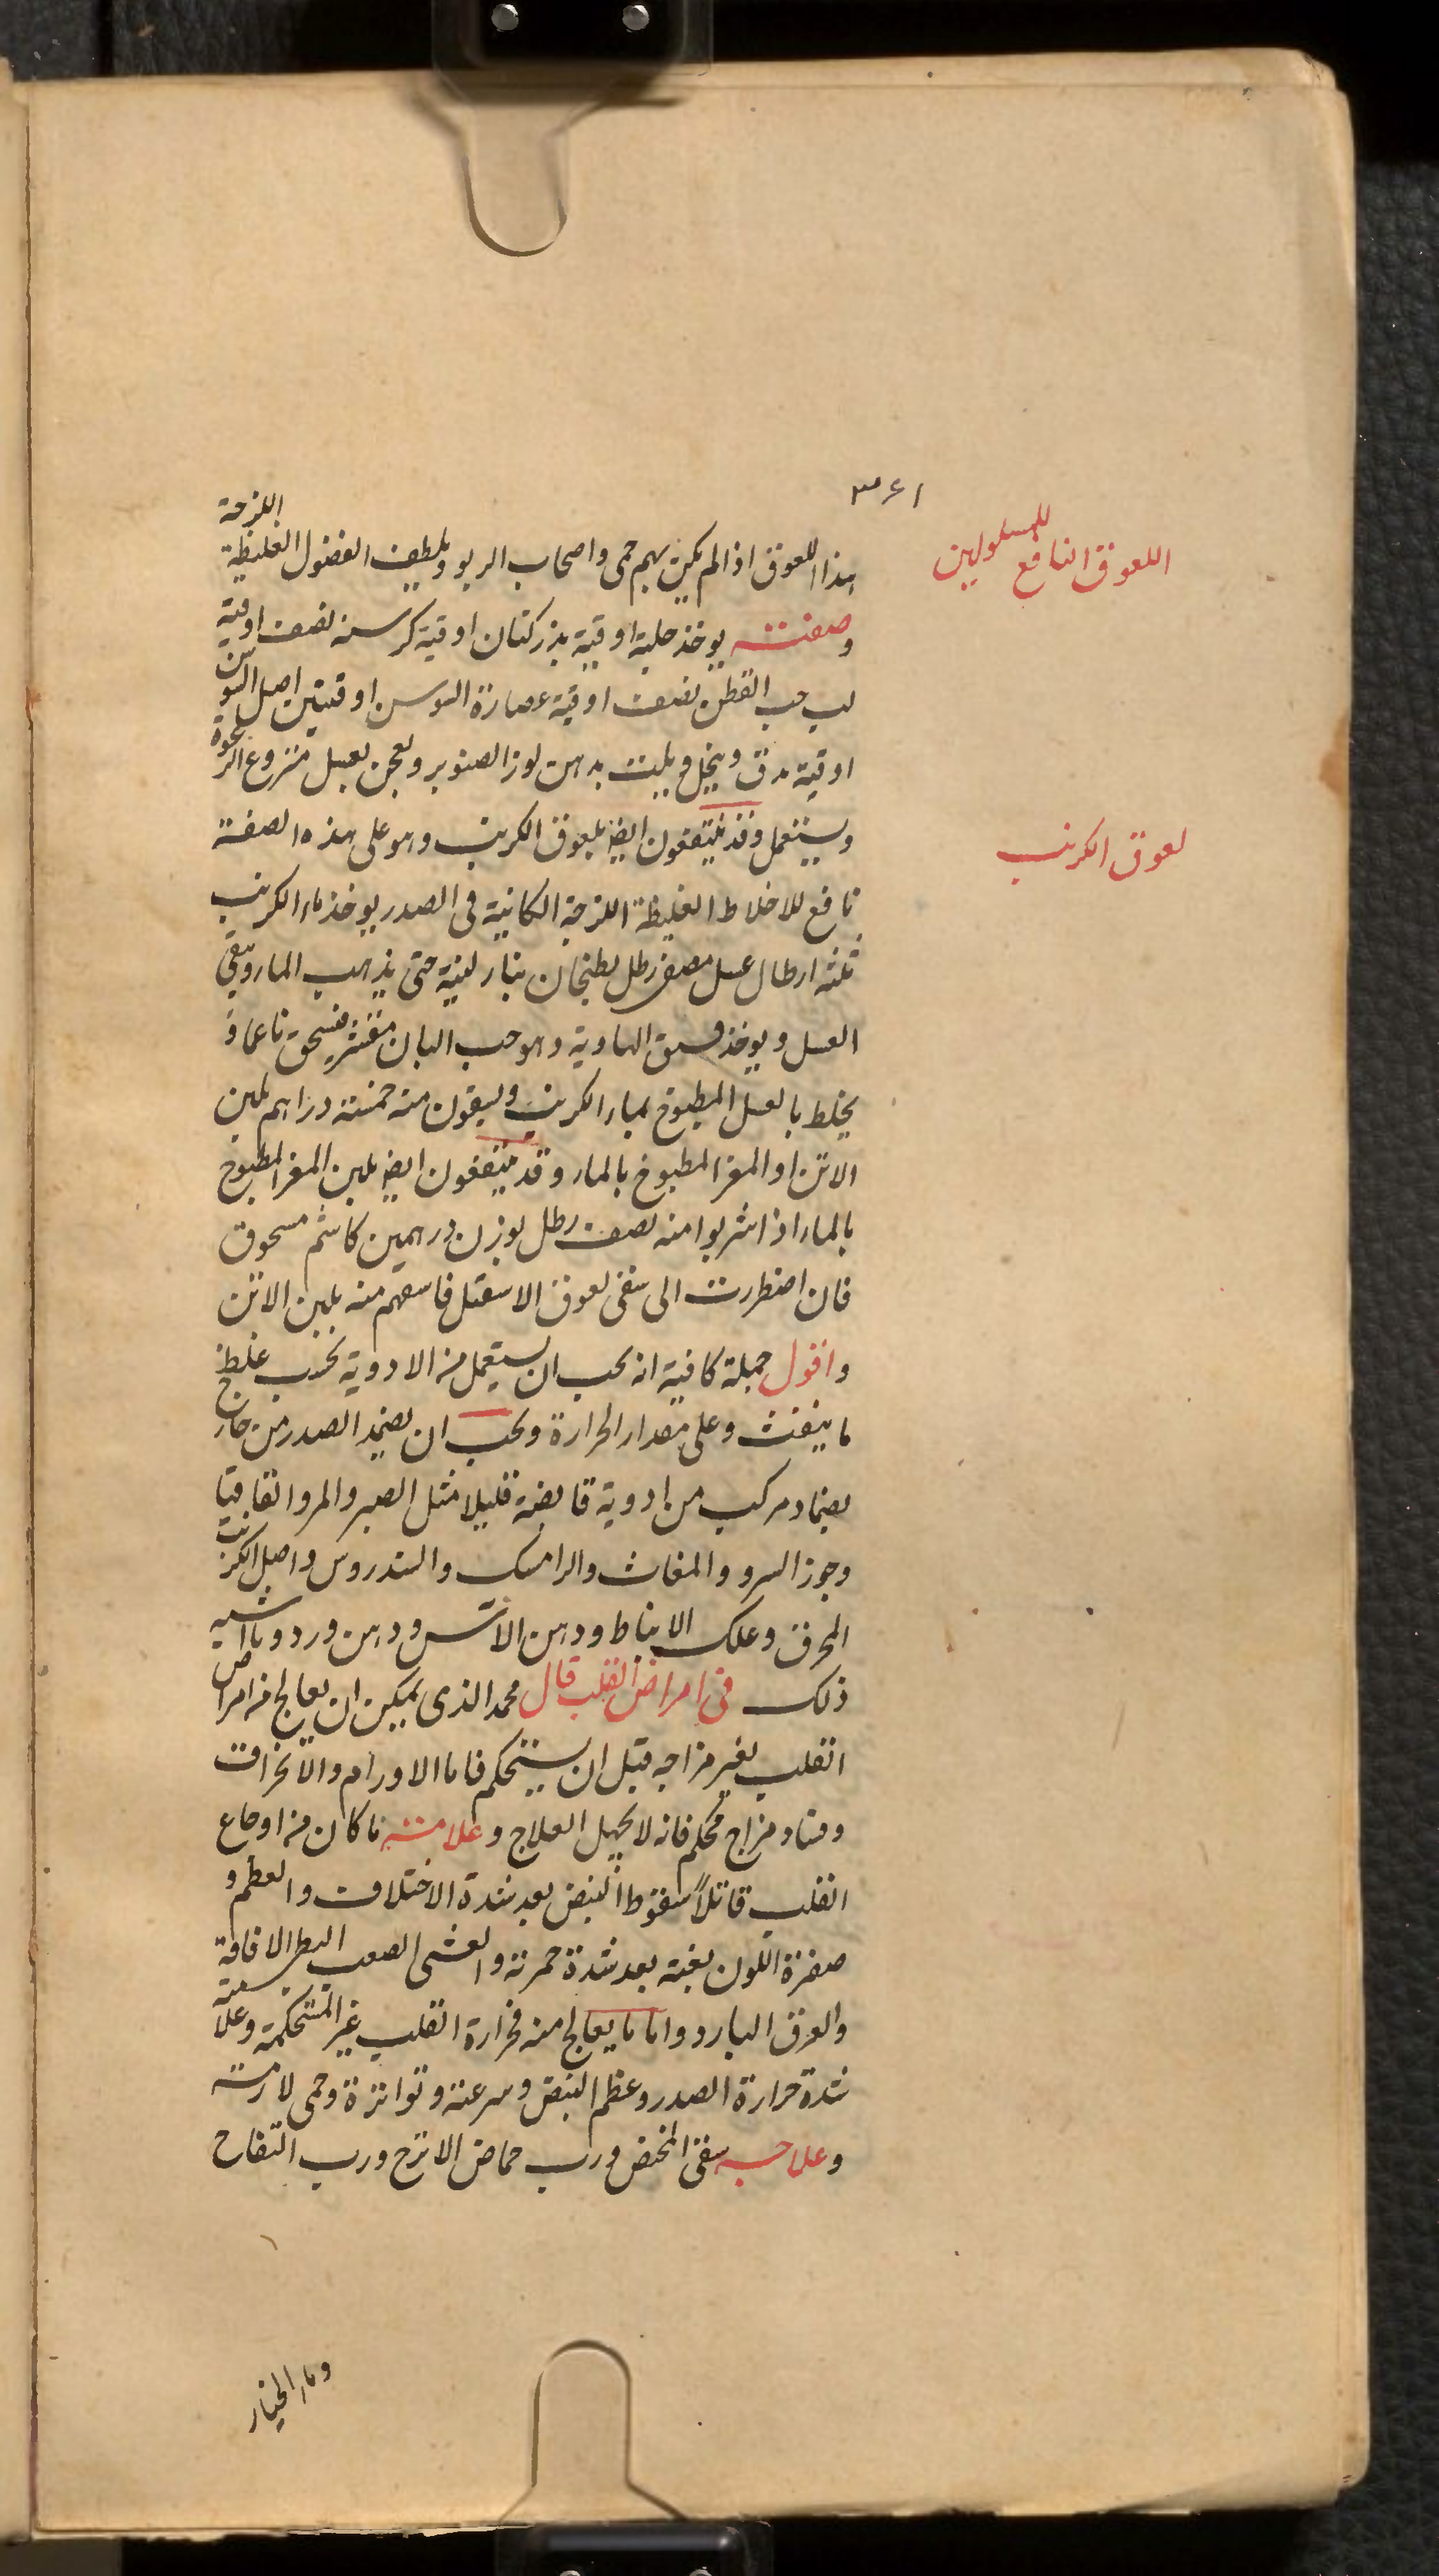 ٣٤١
اللعوق النافع للمسلولين
هذا اللعوق اذا لم يكن بهم حمى واصحاب الربو ويلطف الفضول الغليظة اللزجة
وصفته يوخذ حلبة اوقية بزر كتان اوقية كرسنه نصف اوقية
لب حب القطن نصف اوقية عصارة السوسن اوقيتين اصل السوسن
اوقية يدق وينخل ويلت بدهن لوز الصنوبر ويعجن بعسل منزوع الرغوة
ويستعمل وقد ينتفعون ايضا بلعوق الكرنب وهو على هذه الصفة
لعوق الكرنب
نافع للاخلاط الغليظة اللزجة الكائنة فى الصدر يوخذ ماء الكرنب
ثلثة ارطال عسل مصفى رطل يطبخان بنار لينة حتى يذهب الماء ويبقى
العسل ويوخذ فستق الهاوية وهو حب البان مقشر فيسحق ناعما و
يخلط بالعسل المطبوخ بماء الكرنب ويسقون منه خمسة دراهم بلبن
الاتن او المعز المطبوخ بالماء وقد ينتفعون ايضا بلبن المعز المطبوخ
بالماء اذا شربوا منه نصف رطل بوزن درهمين كاشم مسحوق
فان اضطررت الى سقى لعوق الاسقيل فاسقهم منه بلبن الاتن
واقول جملة كافية انه يجب ان يستعمل من الادوية بحسب غلظ
ما ينفث وعلى مقدار الحرارة ويجب ان يضمد الصدر من خارج
بضماد مركب من ادوية قابضة قليلا مثل الصبر والمر والقاقيا
وجوز السرو والمغاث والرامك والسندروس واصل الكرنب
المحرق وعلك الانباط ودهن الآس ودهن ورد وما اشبه
ذلك فى امراض القلب قال محمد الذى يمكن ان يعالج من امراض
القلب تغير مزاجه قبل ان يستحكم فاما الاورام والانخراق
وفساد مزاج محكم فانه لا يمهل العلاج وعلامته ما كان من اوجاع
القلب قاتلاً سقوط النبض بعد شدة الاختلاف والعظم و
صفرة اللون بغتة بعد شدة حمرته والغشى الصعب البطى الافاقة
والعرق البارد واما ما يعالج منه فحرارة القلب غير المستحكمة وعلامته
شدة حرارة الصدر وعظم النبض وسرعته وتواتره وحمى لازمة
وعلاجه سقى المخيض ورب حماض الاترج ورب التفاح
وماء الخيار